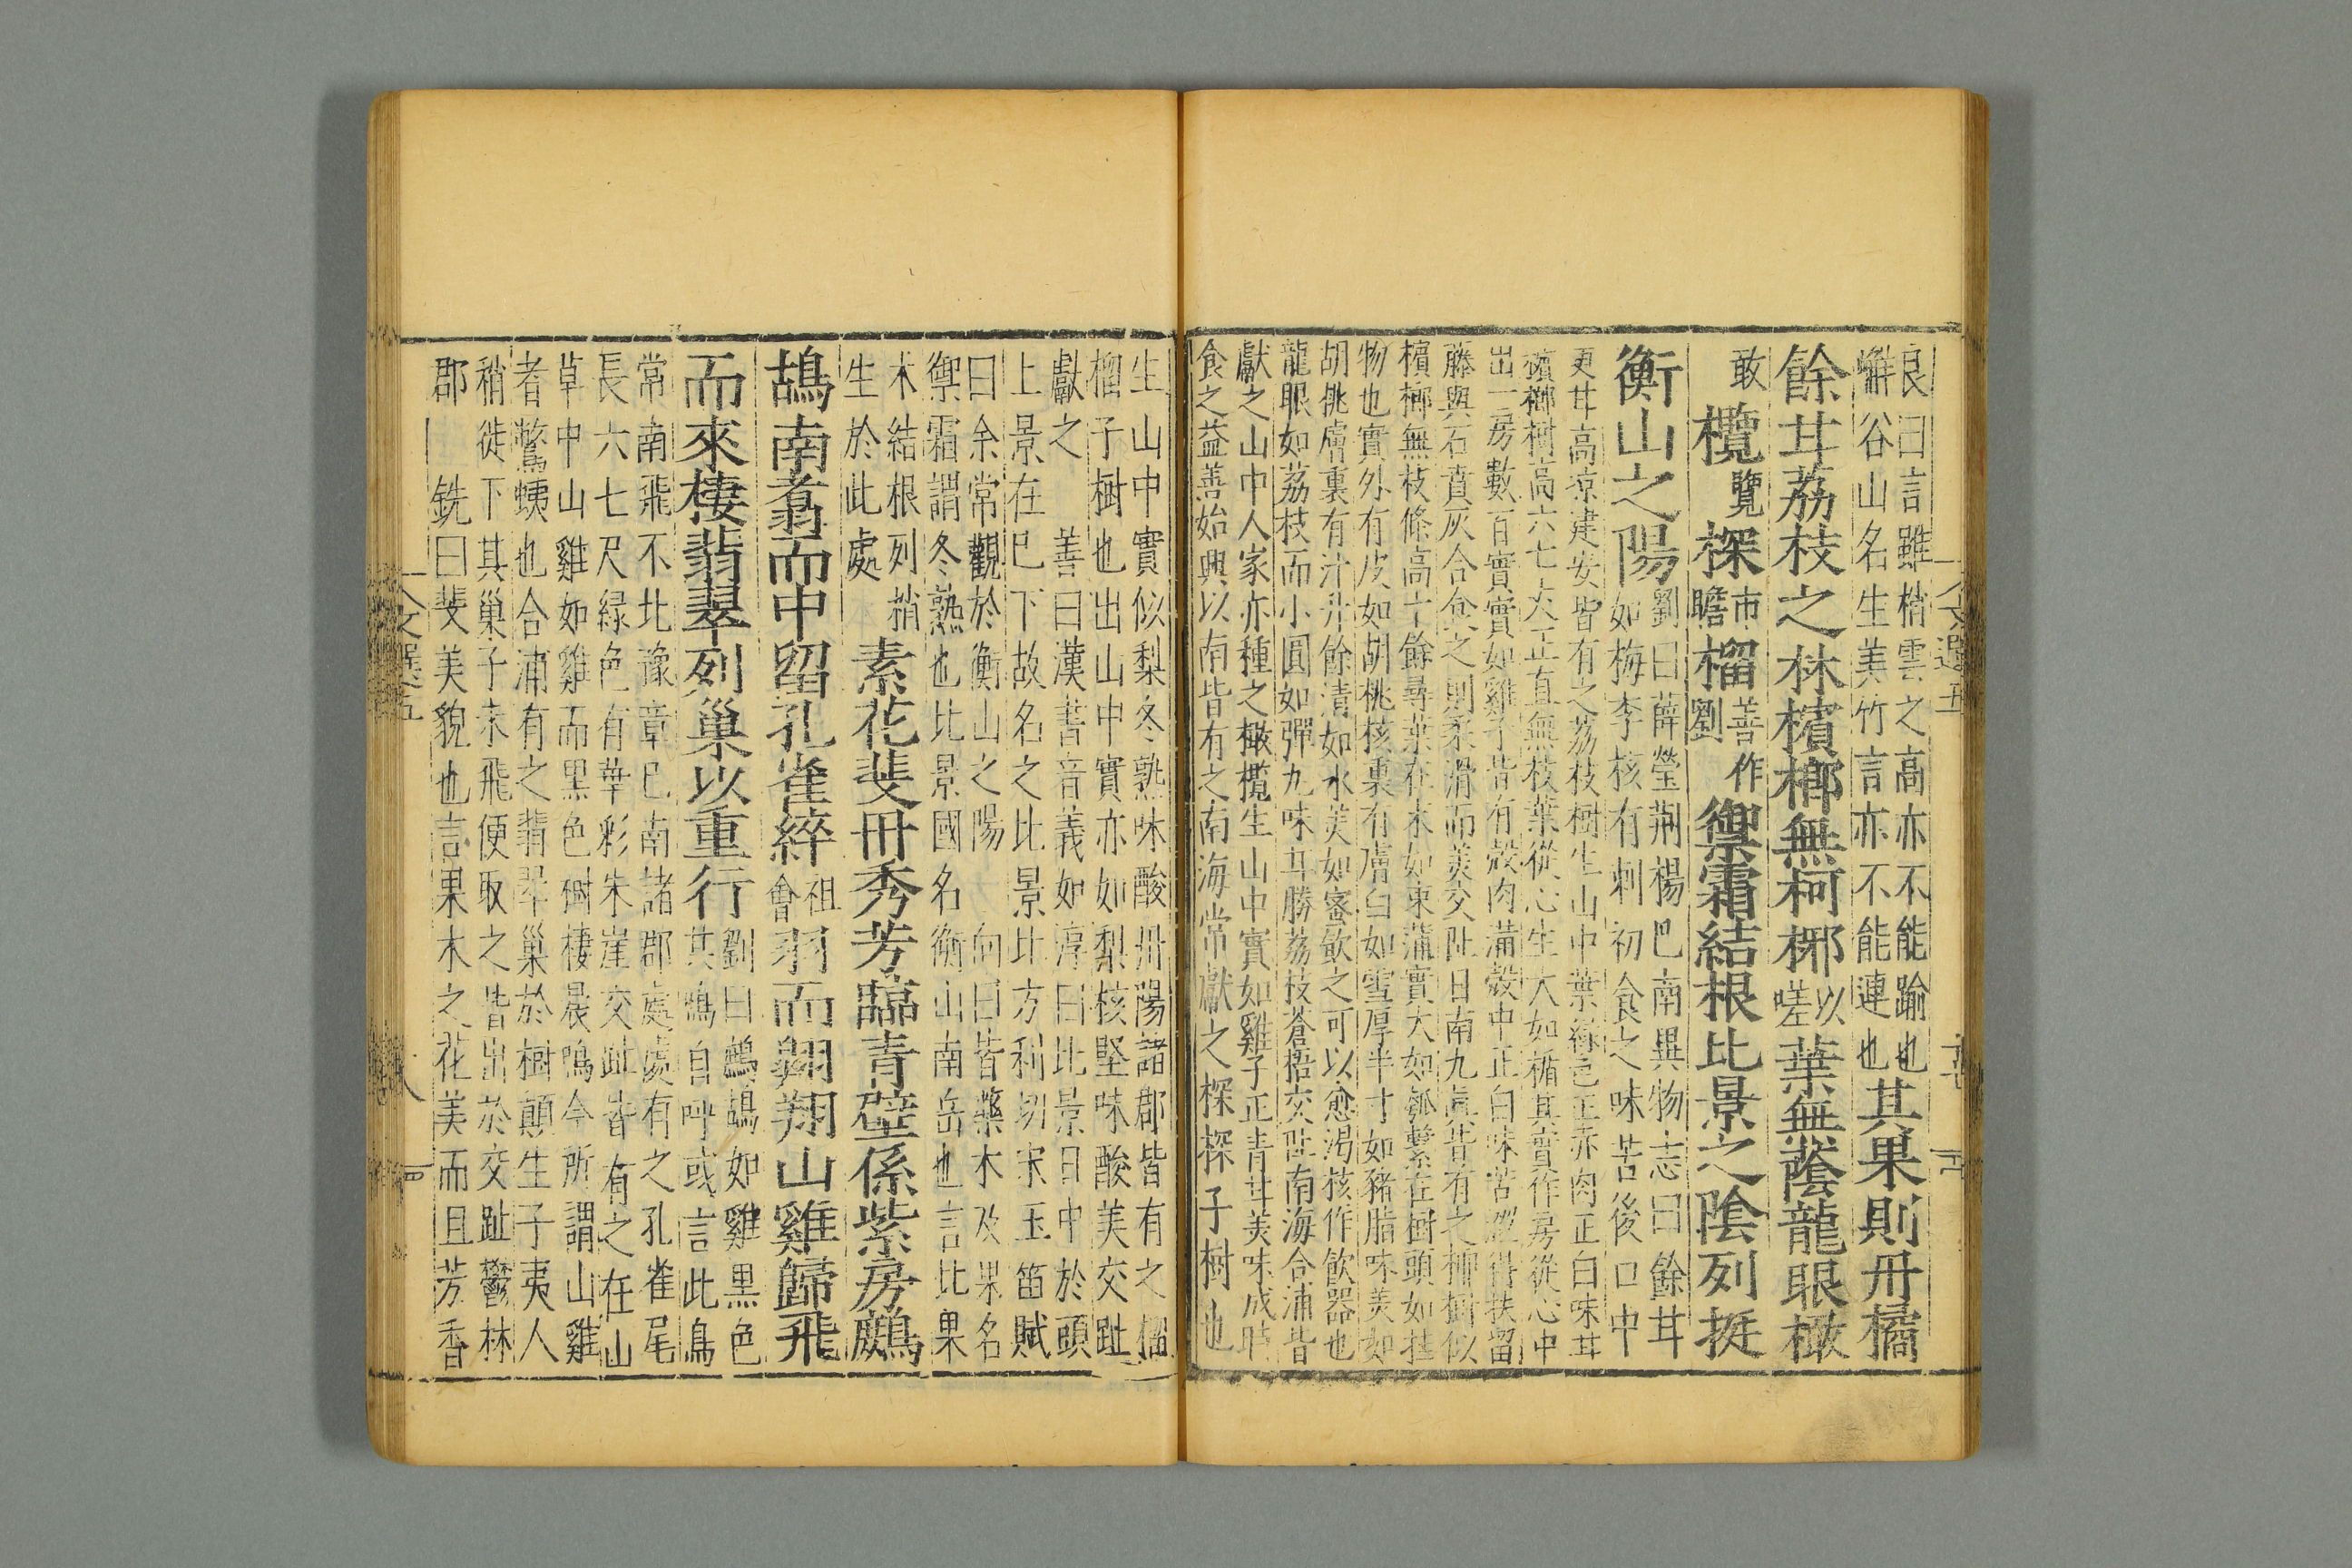 良曰言雖梢雲之高亦不能踰也
嶰谷山名生美竹言亦不能連也
其果則丹橘
餘甘荔枝之林檳榔無柯椰以嗟葉無蔭龍眼橄
敢欖覽探市瞻榴善作劉禦霜結根比景之陰列挺
衡山之陽
劉曰薛瑩荆楊巴南異物志曰餘甘
如梅李核有刺初食之味苦後口中
更甘高涼建安皆有之荔枝樹生山中葉綠色正赤肉正白味甘
檳榔樹高六七丈正直無枝葉從心生大如楯其實作房從心中
出一房數百實實如雞子皆有殻肉滿殻中正白味苦澀得扶留
藤與石賁灰合食之則柔滑而美交趾日南九真皆有之椰樹似
檳榔無枝條高十餘尋葉在木如束蒲實大如瓠繫在樹頭如挂
物也實外有皮如胡桃核裏有膚白如雪厚半寸如豬脂味美如
胡桃膚裏有汁升餘清如水美如蜜飲之可以愈渴核作飲器也
龍眼如荔枝而小圓如彈丸味甘勝荔枝蒼梧交阯南海合浦皆
獻之山中人家亦種之橄欖生山中實如雞子正青甘美味成時
食之益善始興以南皆有之南海常獻之探探子樹也
生山中實似梨冬熟味酸丹陽諸郡皆有之榴
榴子樹也出山中實亦如梨核堅味酸美交趾
獻之 善曰漢書音義如淳曰比景日中於頭
上景在已下故名之比景比方利切宋玉笛賦
曰余常觀於衡山之陽 向曰皆藥木及果名
禦霜謂冬熟也比景國名衡山南岳也言比果
木結根列梢
生於此處
素花斐丹秀芳臨青壁係紫房鷓
鴣南翥而中留孔雀綷祖會羽而翱翔山雞歸飛
而來棲翡翠列巢以重行
劉曰鷓鴣如雞黑色
其鳴自呼或言此鳥
常南飛不北豫章已南諸郡處處有之孔雀尾
長六七尺緑色有華彩朱崖交趾皆有之在山
草中山雞如雞而黑色樹棲晨鳴今所謂山雞
者驚蛦也合浦有之翡翠巢於樹顛生子夷人
稍徙下其巢子未飛便取之皆出於交趾鬱林
郡 銑曰斐美貌也言果木之花美而且芳香